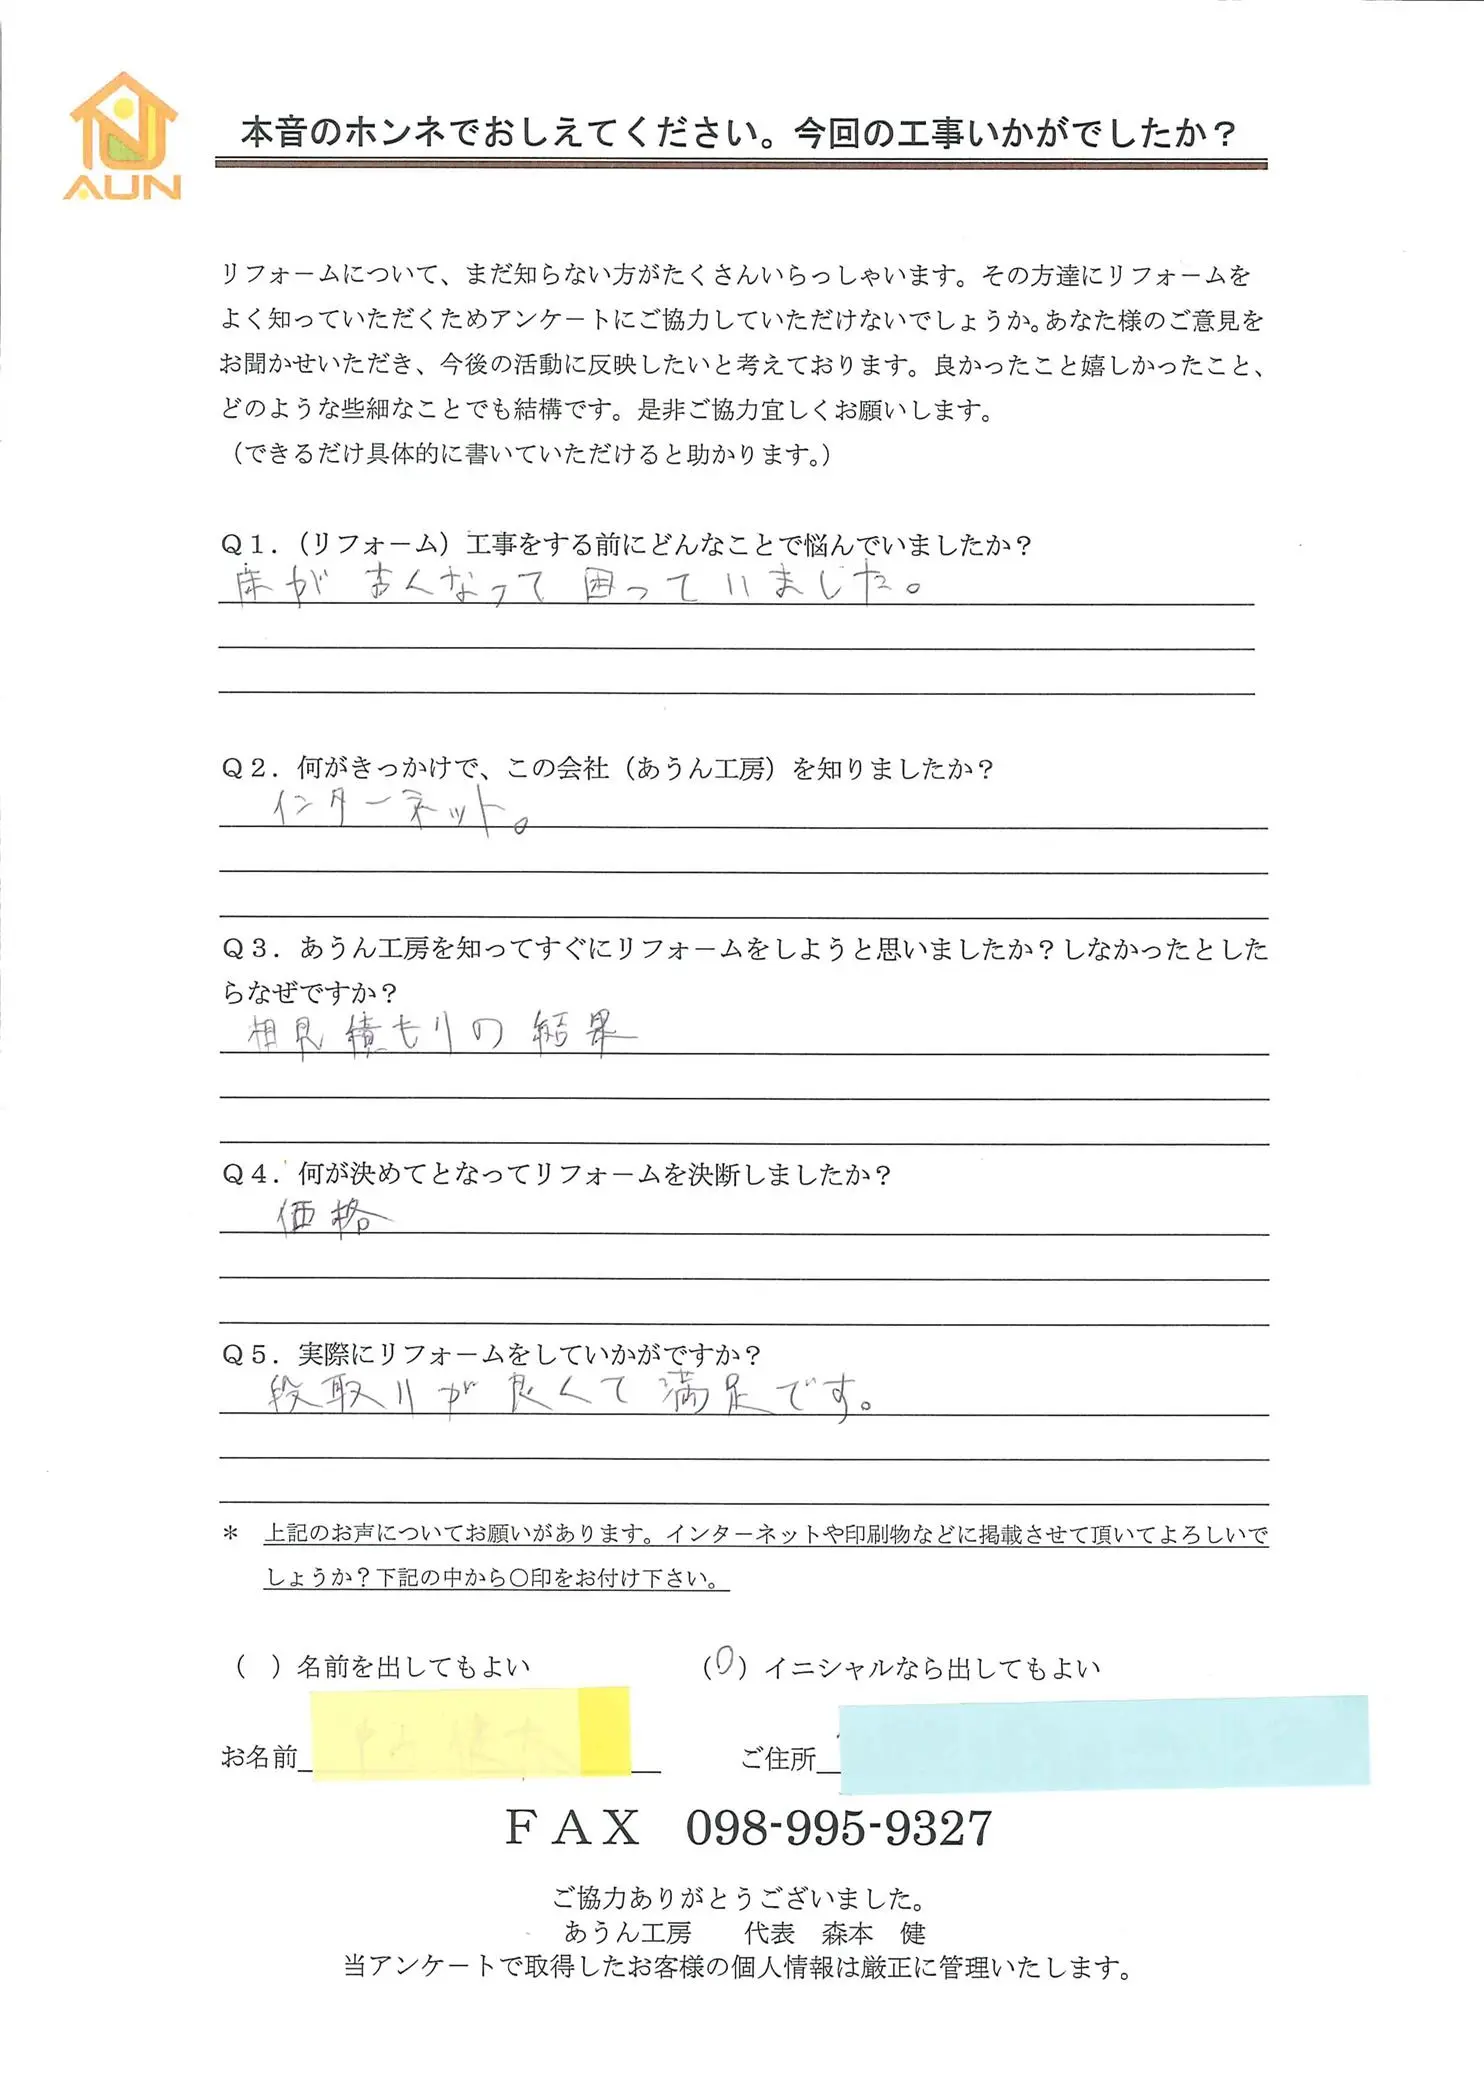 AUN
本音のホンネでおしえてください。今回の工事いかがでしたか？
リフォームについて、まだ知らない方がたくさんいらっしゃいます。その方達にリフォームを
よく知っていただくためアンケートにご協力していただけないでしょうか。あなた様のご意見を
お聞かせいただき、今後の活動に反映したいと考えております。良かったこと嬉しかったこと、
どのような些細なことでも結構です。是非ご協力宜しくお願いします。
（できるだけ具体的に書いていただけると助かります。）
Ｑ１．（リフォーム）工事をする前にどんなことで悩んでいましたか？
床が古くなって困っていました。
Ｑ２．何がきっかけで、この会社（あうん工房）を知りましたか？
インターネット。
Ｑ３．あうん工房を知ってすぐにリフォームをしようと思いましたか？しなかったとした
らなぜですか？
相見積もりの結果
Ｑ４．何が決めてとなってリフォームを決断しましたか？
価格
Ｑ５．実際にリフォームをしていかがですか？
段取りが良くて満足です。
＊　上記のお声についてお願いがあります。インターネットや印刷物などに掲載させて頂いてよろしいで
しょうか？下記の中から〇印をお付け下さい。
（　）名前を出してもよい　（〇）イニシャルなら出してもよい
お名前　ご住所
ＦＡＸ　098-995-9327
ご協力ありがとうございました。
あうん工房　代表　森本　健
当アンケートで取得したお客様の個人情報は厳正に管理いたします。